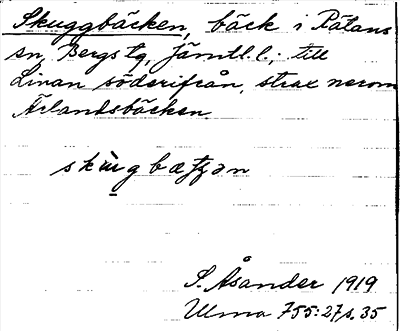 Skuggbäcken, bäck i Rätans
sn, Bergs tg, Jämtl. l.; till
Ljnan söderifrån, strax nerom
Ärlandsbäcken
S. Åsander 1919
Ulma 755:27 s. 35